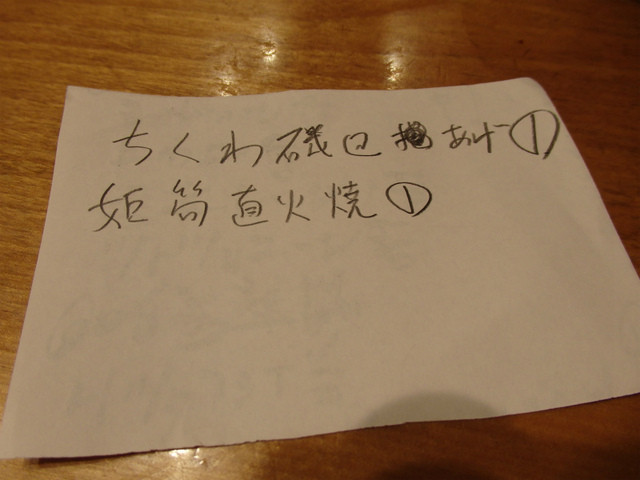 ちくわ磯辺あげ①
姫筍直火焼①